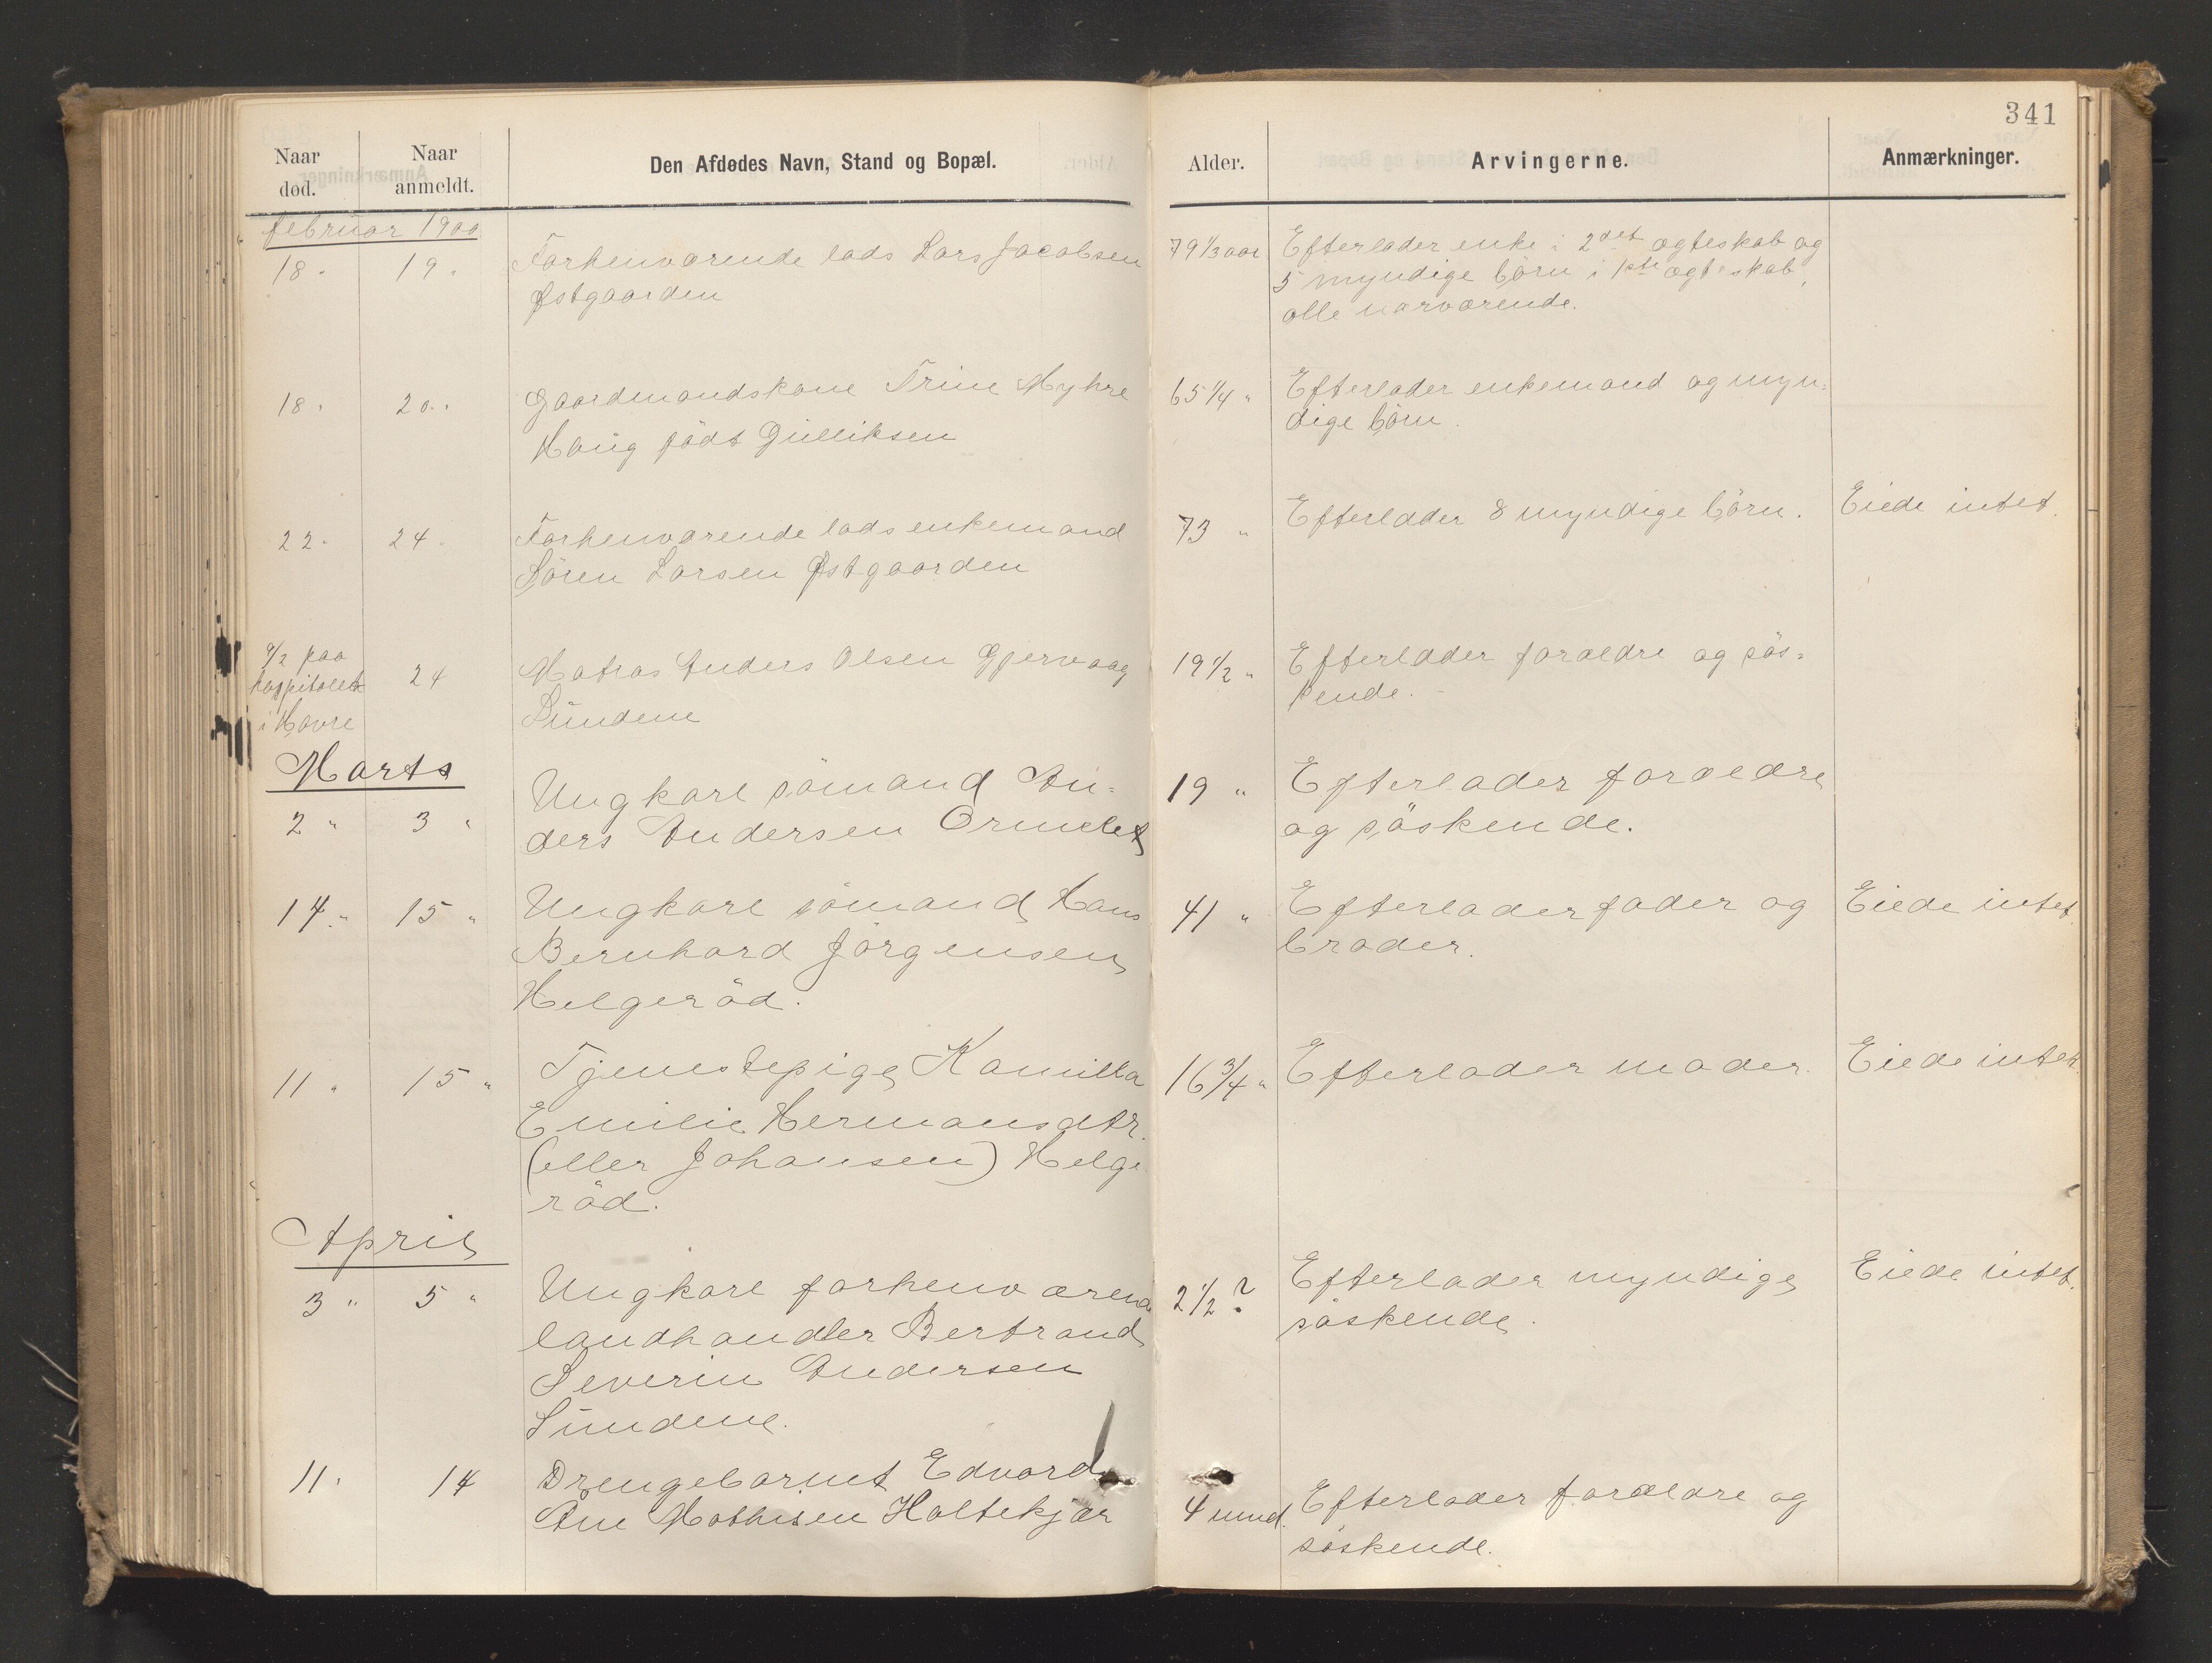 341
Naar død.
Naar anmeldt.
Den Afdødes Navn, Stand og Bopæl.
Alder.
Arvingerne.
Anmærkninger.
februar 1900
18.
19.
Forhenværende lods Lars Jacobsen
Østgaarden
79 1/3 aar
Efterlader enke i 2det ægteskab og
5 myndige börn i 1ste ægteskab,
alle nærværende.
18.
20.
Gaardmandskone Trine Myhre
Haug födt Gulliksen
65 1/4 "
Efterlader enkemand og myn-
dige börn.
22.
24.
Forhenværende lods enkemand
Sören Larsen Østgaarden
73 "
Efterlader 8 myndige börn.
Eiede intet.
9/2 paa
hospitalet
i Havre
24
Matros Anders Olsen Gjervaag
Sundene
19 1/2 "
Efterlader forældre og sös-
kende.
Marts
2 "
3 "
Ungkarl sömand An-
ders Andersen Ormelet
19 "
Efterlader forældre
og söskende.
14 "
15 "
Ungkarl sömand Hans
Bernhard Jörgensen
Helgeröd.
41 "
Efterlader fader og
broder.
Eiede intet.
11 "
15 "
Tjenestepige Kamilla
Emilie Hermansdtr.
(eller Johansen) Helge
röd.
16 3/4 "
Efterlader moder.
Eiede intet.
April
3 "
5 "
Ungkarl forhenværend
landhandler Bertrand
Severin Andersen
Sundene.
2 1/2 ?
Efterlader myndige
söskende.
Eiede intet.
11.
14
Drengebarnet Edvard
Mathisen Holtekjær
4 mnd.
Efterlader forældre og
söskende.